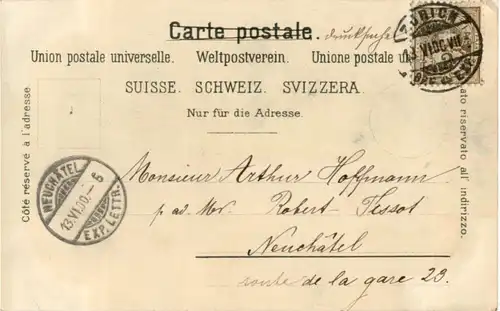 Carte postale. drucksache
Union postale universelle. Weltpostverein. Unione postale
SUISSE. SCHWEIZ. SVIZZERA.
Nur für die Adresse.
Côté réservé à l'adresse.
riservato all' indirizzo.
ZÜRICH
NEUCHÂTEL
13.VI.00.-5
EXP. LETTR.
Monsieur Arthur Hoffmann
p. ad. Mor. Robert-Tessot
Neuchâtel
route de la gare 23.